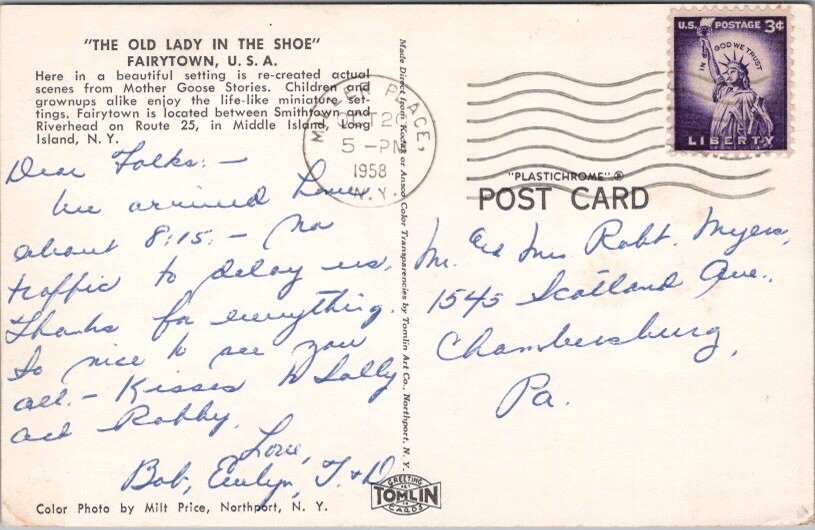 "THE OLD LADY IN THE SHOE"
FAIRYTOWN, U. S. A.
Here in a beautiful setting is re-created actual
scenes from Mother Goose Stories. Children and
grownups alike enjoy the life-like miniature set-
tings. Fairytown is located between Smithtown and
Riverhead on Route 25, in Middle Island, Long
Island, N. Y.
Dear Folks: -
We arrived home
about 8:15. - No
traffic to delay us.
Thanks for everything.
So nice to see you
all. - Kisses to Sally
and Robby.
Love,
Bob, Evelyn, T. & D
Color Photo by Milt Price, Northport, N. Y.
Made Direct from Kodak or Ansco Color Transparencies by Tomlin Art Co., Northport, N. Y.
GREETING
ART
TOMLIN
CARDS
PLACE,
OCT 20
5 - PM
1958
N.Y.
U.S. POSTAGE 3¢
IN GOD WE TRUST
LIBERTY
"PLASTICHROME"®
POST CARD
Mr. and Mrs. Robt. Myers,
1545 Scotland Ave.,
Chambersburg,
Pa.